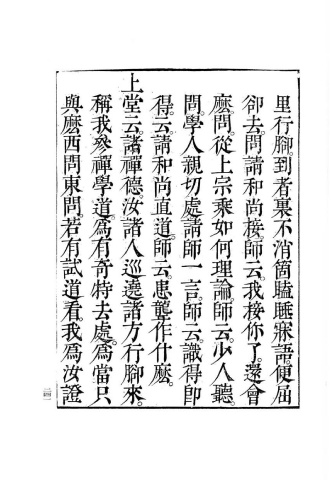 里行腳到者裏不消箇瞌睡寐語便屈
卻去問請和尚接師云我接你了還會
麼問從上宗乘如何理論師云少人聽
問學人親切處請師一言師云識得卽
得云請和尚直道師云患聾作什麼
上堂云諸禪德汝諸人巡遶諸方行腳來
稱我參禪學道爲有奇特去處爲當只
與麼西問東問若有試道看我爲汝證